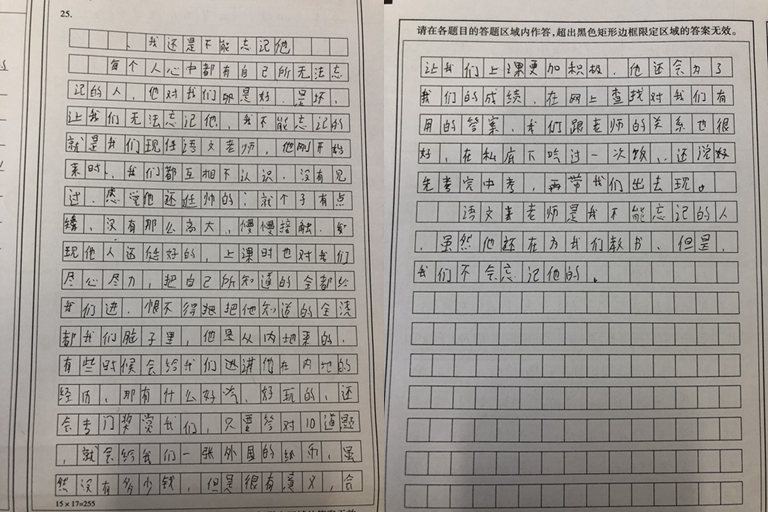 25.
我还是不能忘记他
每个人心中都有自己所无法忘
记的人，他对我们是好，是坏，
让我们无法忘记他，我不能忘记的
就是我们现任语文老师，他刚开始
来时，我们都互相不认识，没有见
过，感觉他还挺帅的；就个子有点
矮，没有那么高大，慢慢接触，发
现他人还挺好的，上课时也对我们
尽心尽力，把自己所知道的全都给
我们讲，恨不得把他知道的全浇
都我们脑子里，他是从内地来的，
有些时候会给我们讲他在内地的
经历，那有什么好吃，好玩的，还
会专门奖赏我们，只要答对10道题
，就会给我们一张外国的纸币，虽
然没有多少钱，但是很有意义，会
15×17=255
请在各题目的答题区域内作答，超出黑色矩形边框限定区域的答案无效。
让我们上课更加积极，他还会为了
我们的成绩，在网上查找对我们有
用的答案，我们跟老师的关系也很
好，在私底下吃过一次饭，还说好
先考完中考，再带我们出去现。
语文老师是我不能忘记的人
，虽然他还在为我们教书，但是，
我们不会忘记他的。